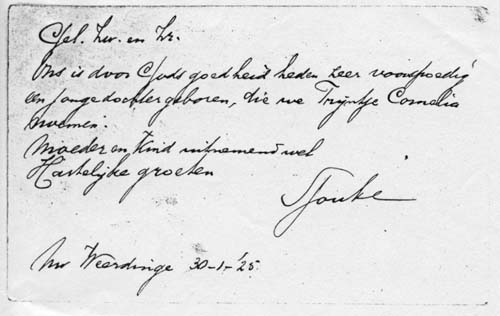 Gel. Zw. en Zr.
Ons is door Gods goedheid heden zeer voorspoedig
een jonge dochter geboren, die we Trijntje Cornelia
noemen.
Moeder en Kind uitnemend wel
Hartelijke groeten
Sjouke
Nw Weerdinge 30-1-'25